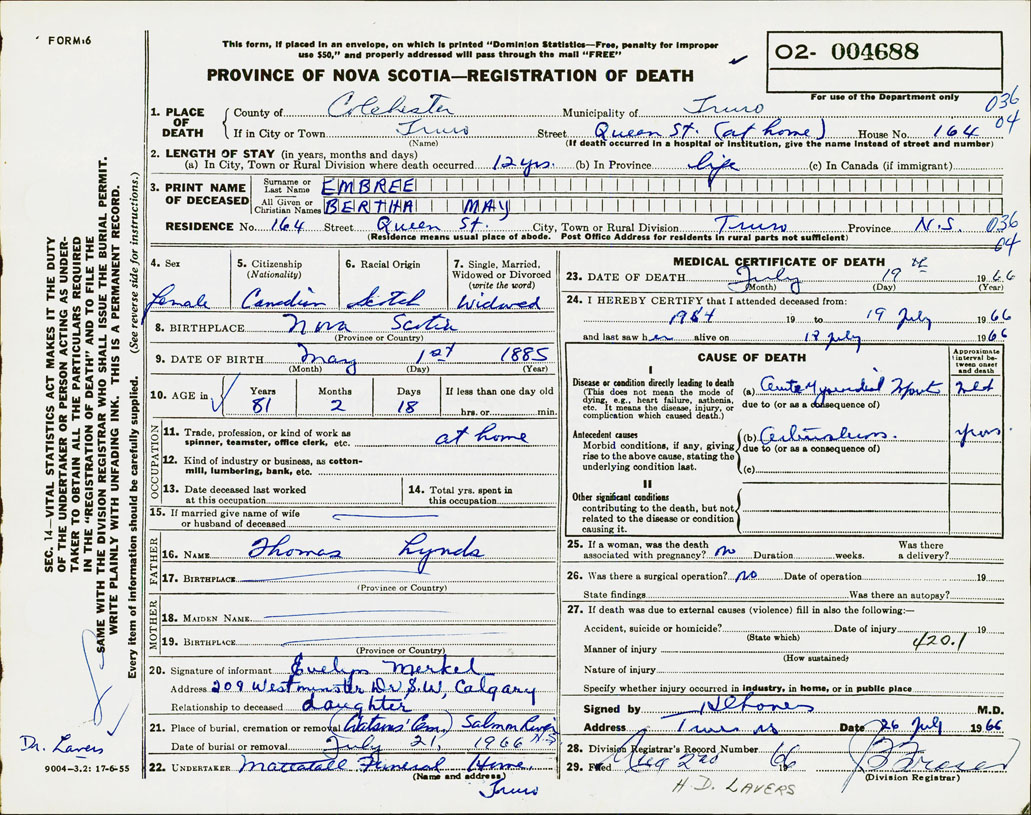 FORM 6
This form, if placed in an envelope, on which is printed "Dominion Statistics—Free, penalty for improper
use $50," and properly addressed will pass through the mail "FREE"
PROVINCE OF NOVA SCOTIA—REGISTRATION OF DEATH
02- 004688
For use of the Department only
036
04
1. PLACE OF DEATH
County of Colchester Municipality of Truro
If in City or Town Truro Street Queen St. (at home) House No. 164
(Name) (If death occurred in a hospital or institution, give the name instead of street and number)
2. LENGTH OF STAY (in years, months and days)
(a) In City, Town or Rural Division where death occurred 12 yrs. (b) In Province life (c) In Canada (if immigrant)
3. PRINT NAME OF DECEASED
Surname or Last Name EMBREE
All Given or Christian Names BERTHA MAY
RESIDENCE No. 164 Street Queen St. City, Town or Rural Division Truro Province N.S.
036
04
(Residence means usual place of abode. Post Office Address for residents in rural parts not sufficient)
4. Sex
female
5. Citizenship
(Nationality)
Canadian
6. Racial Origin
Scotch
7. Single, Married,
Widowed or Divorced
(write the word)
Widowed
8. BIRTHPLACE Nova Scotia
(Province or Country)
9. DATE OF BIRTH May 1st 1885
(Month) (Day) (Year)
10. AGE in
Years Months Days If less than one day old
81 2 18 hrs. or min.
OCCUPATION
11. Trade, profession, or kind of work as
spinner, teamster, office clerk, etc. at home
12. Kind of industry or business, as cotton-
mill, lumbering, bank, etc.
13. Date deceased last worked
at this occupation
14. Total yrs. spent in
this occupation
15. If married give name of wife
or husband of deceased
FATHER
16. NAME Thomas Lynds
17. BIRTHPLACE
(Province or Country)
MOTHER
18. MAIDEN NAME
19. BIRTHPLACE
(Province or Country)
20. Signature of informant Evelyn Merkel
Address 209 Westminster Dr S.W, Calgary
Relationship to deceased daughter
21. Place of burial, cremation or removal Salmon River N.S
Date of burial or removal July 21, 1966
22. UNDERTAKER Mattatall Funeral Home,
(Name and address)
Truro
MEDICAL CERTIFICATE OF DEATH
23. DATE OF DEATH July 19 th 1966
(Month) (Day) (Year)
24. I HEREBY CERTIFY that I attended deceased from:
19 to 19 July 1966
and last saw her alive on 18 July 1966
CAUSE OF DEATH
Approximate
interval be-
tween onset
and death
I
Disease or condition directly leading to death
(This does not mean the mode of
dying, e.g., heart failure, asthenia,
etc. It means the disease, injury, or
complication which caused death.)
(a)
due to (or as a consequence of)
Antecedent causes
Morbid conditions, if any, giving
rise to the above cause, stating the
underlying condition last.
(b) yrs.
due to (or as a consequence of)
(c)
II
Other significant conditions
contributing to the death, but not
related to the disease or condition
causing it.
25. If a woman, was the death
associated with pregnancy? no Duration weeks. Was there
a delivery?
26. Was there a surgical operation? no Date of operation 19
State findings Was there an autopsy?
27. If death was due to external causes (violence) fill in also the following:—
Accident, suicide or homicide? Date of injury 19
(State which)
420.1
Manner of injury
(How sustained)
Nature of injury
Specify whether injury occurred in industry, in home, or in public place
Signed by M.D.
Address Truro NS Date 26 July 1966
28. Division Registrar's Record Number
29. Filed Aug 2nd 1966
(Division Registrar)
H D. LAVERS
SEC. 14—VITAL STATISTICS ACT MAKES IT THE DUTY
OF THE UNDERTAKER OR PERSON ACTING AS UNDER-
TAKER TO OBTAIN ALL THE PARTICULARS REQUIRED
IN THE "REGISTRATION OF DEATH" AND TO FILE THE
SAME WITH THE DIVISION REGISTRAR WHO SHALL ISSUE THE BURIAL PERMIT.
WRITE PLAINLY WITH UNFADING INK. THIS IS A PERMANENT RECORD.
Every item of information should be carefully supplied. (See reverse side for instructions.)
Dr. Lavers
9004—3.2: 17-6-55